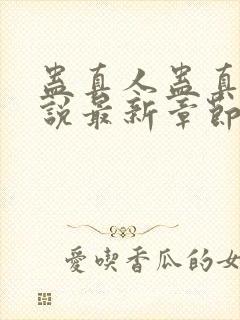 蛊真人蛊真
說最新章節
愛喫香瓜的女